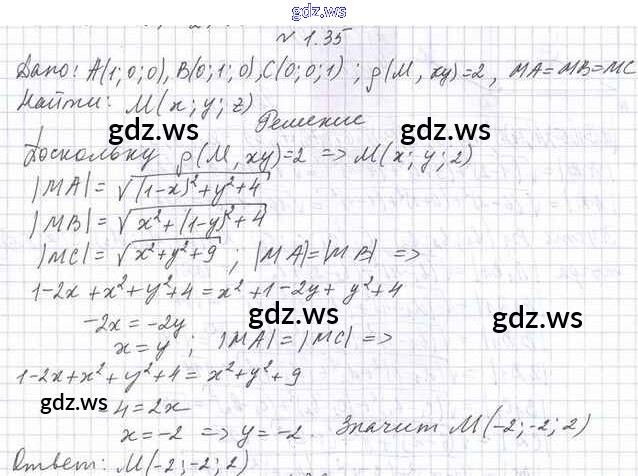 gdz.ws
№ 1.35
Дано: A(1;0;0), B(0;1;0), C(0;0;1); ρ(M, xy)=2, MA=MB=MC
Найти: M(x;y;z)
Решение
gdz.ws gdz.ws
Поскольку ρ(M, xy)=2 => M(x;y;2)
|MA| = √((1-x)²+y²+4)
|MB| = √(x²+(1-y)²+4)
|MC| = √(x²+y²+9); |MA|=|MB| =>
1-2x+x²+y²+4 = x²+1-2y+y²+4
gdz.ws gdz.ws
-2x=-2y
x=y; |MA|=|MC| =>
1-2x+x²+y²+4 = x²+y²+9
gdz.ws
-4=2x
gdz.ws
x=-2 => y=-2. Значит M(-2;-2;2)
Ответ: M(-2;-2;2)